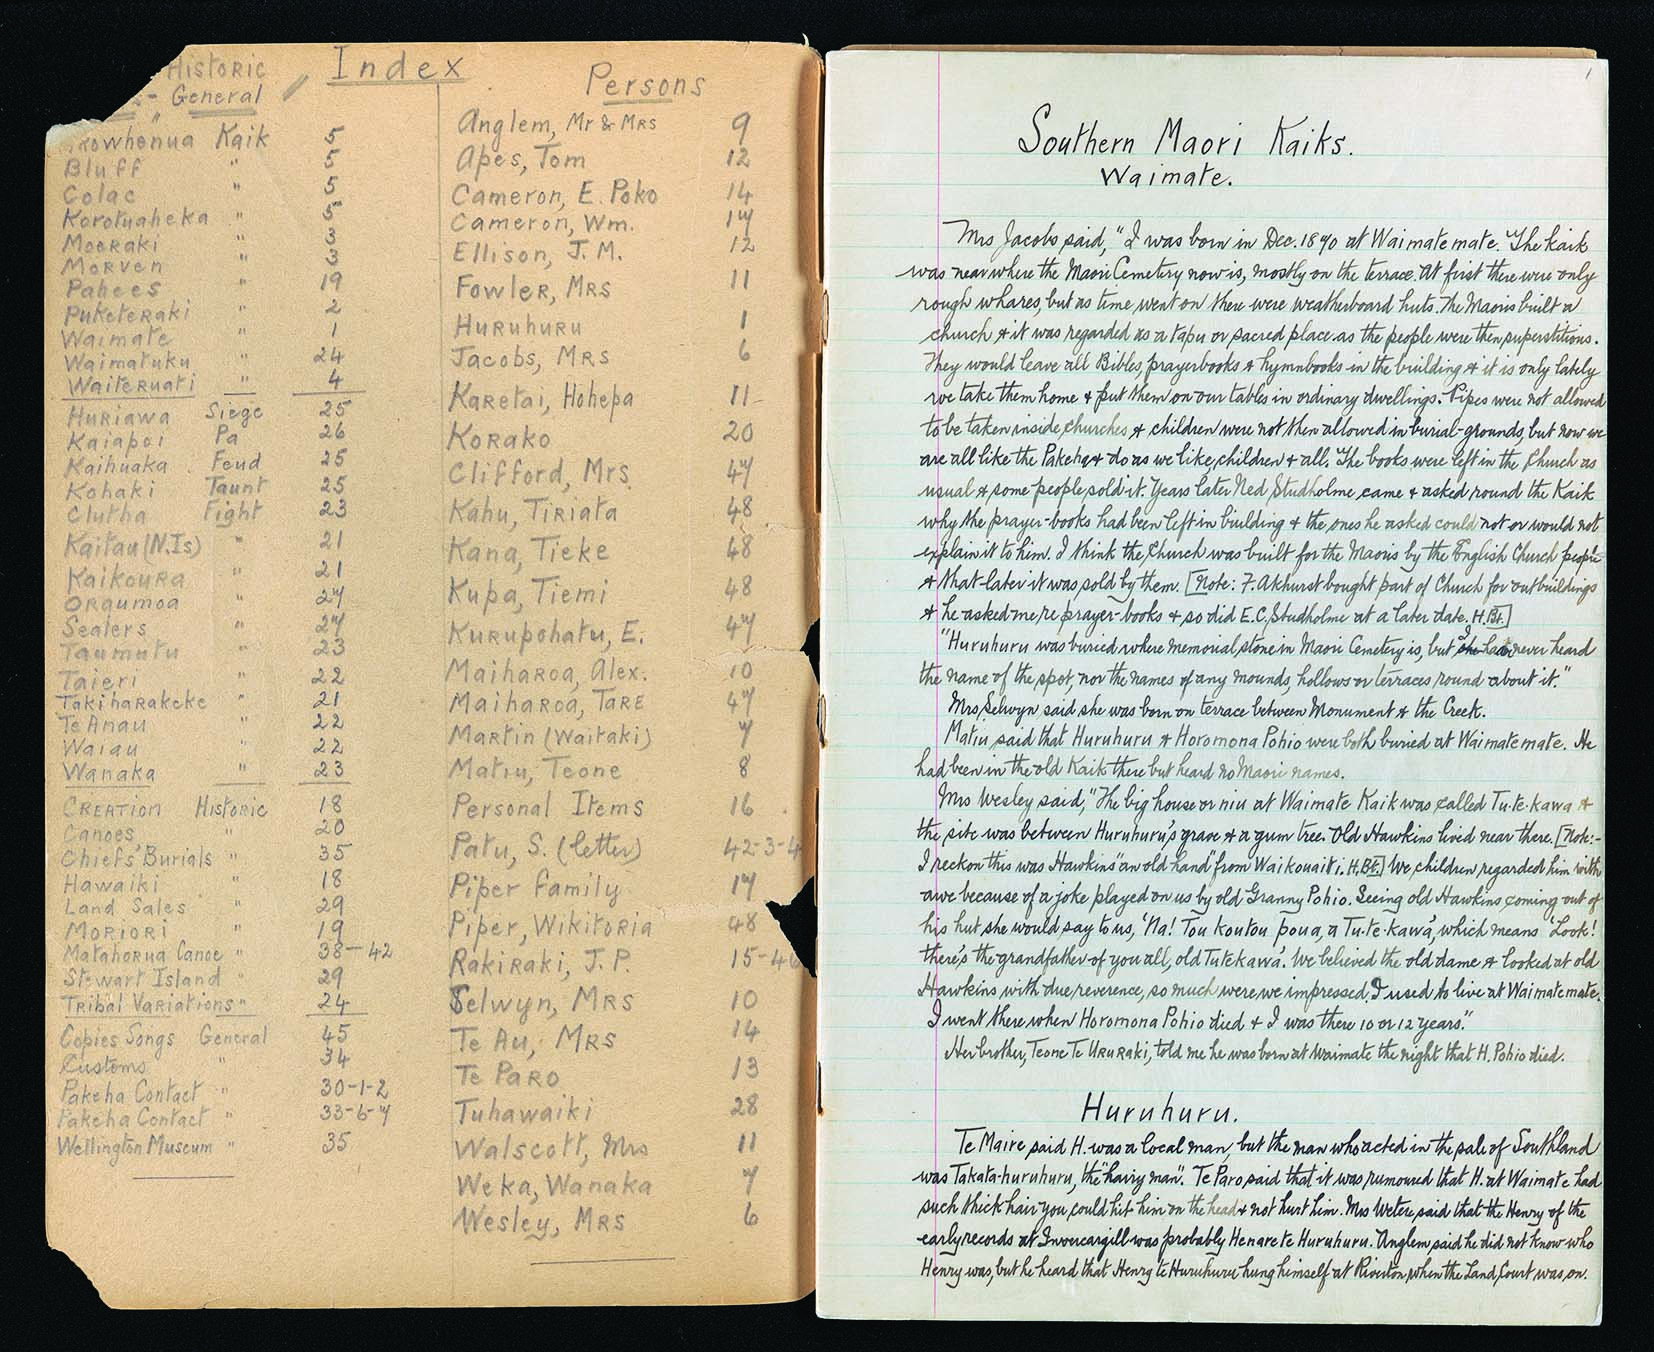 Index
Historic
General
"
Kaik 5
Bluff " 5
Colac " 5
Korotuaheka " 5
Moeraki " 3
Morven " 3
Pahees " 19
Puketeraki " 2
Waimate " 1
Waimatuku " 24
Waiteruati " 4
Huriawa Siege 25
Kaiapoi Pa 26
Kaihuaka Feud 25
Kohaki Taunt 25
Clutha Fight 23
Kaitau (N.Is) " 21
Kaikoura " 21
Oraumoa " 27
Sealers " 27
Taumutu " 23
Taieri " 22
Takiharakeke " 21
Te Anau " 22
Waiau " 22
Wanaka " 23
Creation Historic 18
Canoes " 20
Chiefs' Burials " 35
Hawaiki " 18
Land Sales " 29
Moriori " 19
Matahorua Canoe " 38-42
Stewart Island " 29
Tribal Variations " 24
Copies Songs General 45
Customs " 34
Pakeha Contact " 30-1-2
Pakeha Contact " 33-6-7
Wellington Museum " 35
Persons
Anglem, Mr & Mrs 9
Apes, Tom 12
Cameron, E. Poko 14
Cameron, Wm. 17
Ellison, J. M. 12
Fowler, Mrs 11
Huruhuru 1
Jacobs, Mrs 6
Karetai, Hohepa 11
Korako 20
Clifford, Mrs 47
Kahu, Tiriata 48
Kana, Tieke 48
Kupa, Tiemi 48
Kurupohatu, E. 47
Maiharoa, Alex. 10
Maiharoa, Tare 47
Martin (Waitaki) 7
Matiu, Teone 8
Personal Items 16
Patu, S. (letter) 42-3-4
Piper family 17
Piper, Wikitoria 48
Rakiraki, J. P. 15-46
Selwyn, Mrs 10
Te Au, Mrs 14
Te Paro 13
Tuhawaiki 28
Walscott, Mrs 11
Weka, Wanaka 7
Wesley, Mrs 6
1
Southern Maori Kaiks.
Waimate.
Mrs Jacobs, said, "I was born in Dec. 1870 at Waimatemate. The kaik
was near where the Maori Cemetery now is, mostly on the terrace. At first there were only
rough whares, but as time went on there were weatherboard huts. The Maoris built a
church & it was regarded as a tapu or sacred place as the people were then superstitious.
They would leave all Bibles, prayerbooks & hymnbooks in the building & it is only lately
we take them home & put them on our tables in ordinary dwellings. Pipes were not allowed
to be taken inside churches & children were not then allowed in burial-grounds, but now we
are all like the Pakeha & do as we like, children & all. The books were left in the Church as
usual & some people sold it. Years later Ned Studholme came & asked round the Kaik
why the prayer-books had been left in building & the ones he asked could not or would not
explain it to him. I think the Church was built for the Maoris by the English Church people
& that later it was sold by them. [Note: F. Akhurst bought part of Church for outbuildings
& he asked me re prayer-books & so did E.C. Studholme at a later date. H.Bt.]
"Huruhuru was buried where memorial stone in Maori Cemetery is, but I had never heard
the name of the spot, nor the names of any mounds, hollows or terraces round about it."
Mrs Selwyn said she was born on terrace between Monument & the Creek.
Matiu said that Huruhuru & Horomona Pohio were both buried at Waimatemate. He
had been in the old Kaik there but heard no Maori names.
Mrs Wesley said, "The big house or niu at Waimate Kaik was called Tu-te-kawa &
the site was between Huruhuru's grave & a gum tree. Old Hawkins lived near there. [Note:-
I reckon this was Hawkins "an old hand" from Waikouaiti. H.Bt.] We children regarded him with
awe because of a joke played on us by old Granny Pohio. Seeing old Hawkins coming out of
his hut she would say to us, 'Na! Tou koutou poua, a Tu-te-kawa', which means 'Look!
there's the grandfather of you all, old Tutekawa'. We believed the old dame & looked at old
Hawkins with due reverence, so much were we impressed. I used to live at Waimatemate.
I went there when Horomona Pohio died & I was there 10 or 12 years."
Her brother, Teone Te Ururaki, told me he was born at Waimate the night that H. Pohio died.
Huruhuru.
Te Maire said H. was a local man, but the man who acted in the sale of Southland
was Takata-huruhuru, the "hairy man". Te Paro said that it was rumoured that H. at Waimate had
such thick hair you could hit him on the head & not hurt him. Mrs Wetere said that the Henry of the
early records at Invercargill was probably Henare te Huruhuru. Anglem said he did not know who
Henry was, but he heard that Henry te Huruhuru hung himself at Riverton when the Land Court was on.